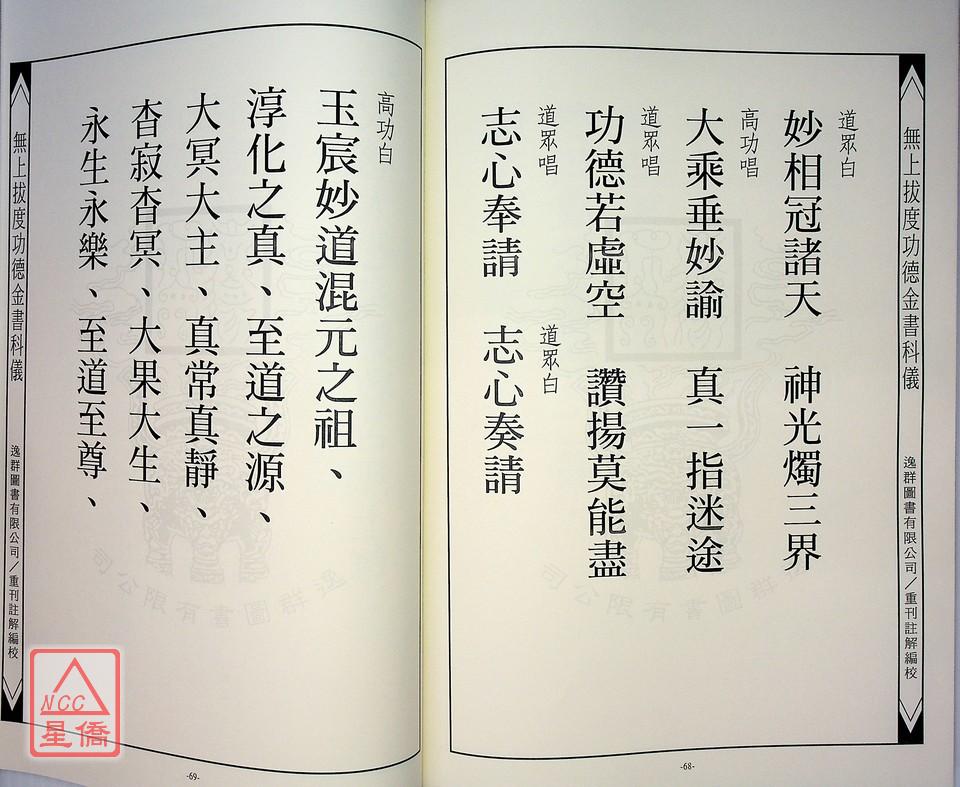 無上拔度功德金書科儀
逸群圖書有限公司／重刊註解編校
道眾白
妙相冠諸天　神光燭三界
高功唱
大乘垂妙諭　真一指迷途
道眾唱
功德若虛空　讚揚莫能盡
道眾唱
志心奉請
道眾白
志心奏請
-68-
高功白
玉宸妙道混元之祖、
淳化之真、至道之源、
大冥大主、真常真靜、
杳寂杳冥、大果大生、
永生永樂、至道至尊、
無上拔度功德金書科儀
逸群圖書有限公司／重刊註解編校
-69-
逸群圖書有限公司
逸群圖書有限公司
NCC
星僑